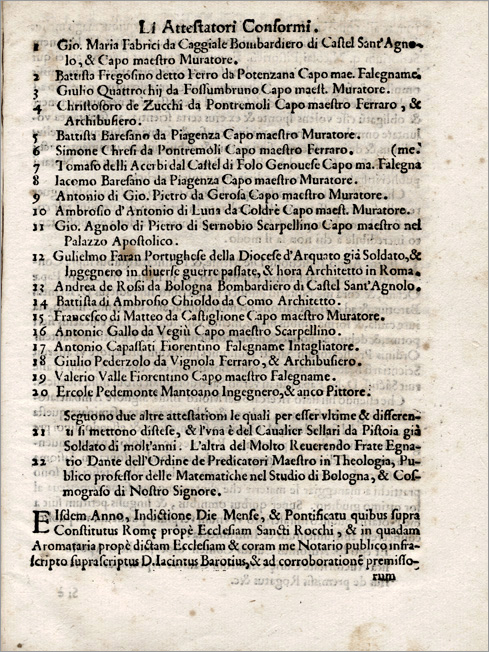 Li Attestatori Conformi.
1 Gio. Maria Fabrici da Caggiale Bombardiero di Castel Sant'Agno-
lo, & Capo maestro Muratore.
2 Battista Fregosino detto Ferro da Potenzana Capo mae. Falegname.
3 Giulio Quattrochij da Fossumbruno Capo maest. Muratore.
4 Christoforo de Zucchi da Pontremoli Capo maestro Ferraro, &
Archibusiero.
5 Battista Baresano da Piagenza Capo maestro Muratore.
6 Simone Chresi da Pontremoli Capo maestro Ferraro. (me.
7 Tomaso delli Acerbi dal Castel di Folo Genouese Capo ma. Falegna
8 Iacomo Baresano da Piagenza Capo maestro Muratore.
9 Antonio di Gio. Pietro da Gerosa Capo maestro Muratore.
10 Ambrosio d'Antonio di Luna da Coldrè Capo maest. Muratore.
11 Gio. Agnolo di Pietro di Sernobio Scarpellino Capo maestro nel
Palazzo Apostolico.
12 Gulielmo Faran Portughese della Diocese d'Arquato già Soldato, &
Ingegnero in diuerse guerre passate, & hora Architetto in Roma.
13 Andrea de Rosi da Bologna Bombardiero di Castel Sant'Agnolo.
14 Battista di Ambrosio Ghioldo da Como Architetto.
15 Francesco di Matteo da Castiglione Capo maestro Muratore.
16 Antonio Gallo da Vegiù Capo maestro Scarpellino.
17 Antonio Capassati Fiorentino Falegname Intagliatore.
18 Giulio Pederzolo da Vignola Ferraro, & Archibusiero.
19 Valerio Valle Fiorentino Capo maestro Falegname.
20 Ercole Pedemonte Mantoano Ingegnero, & anco Pittore.
Seguono due altre attestationi le quali per esser vltime & differen-
21 ti si mettono distese, & l'vna è del Caualier Sellari da Pistoia già
Soldato di molt'anni. L'altra del Molto Reuerendo Frate Egna-
22 tio Dante dell'Ordine de Predicatori Maestro in Theologia, Pu-
blico professor delle Matematiche nel Studio di Bologna, & Cos-
mografo di Nostro Signore.
EIsdem Anno, Indictione Die Mense, & Pontificatu quibus supra
Constitutus Romę propè Ecclesiam Sancti Rocchi, & in quadam
Aromataria propè dictam Ecclesiam & coram me Notario publico infra-
scripto suprascriptus D. Iacintus Barotius, & ad corroborationē premisso-
rum